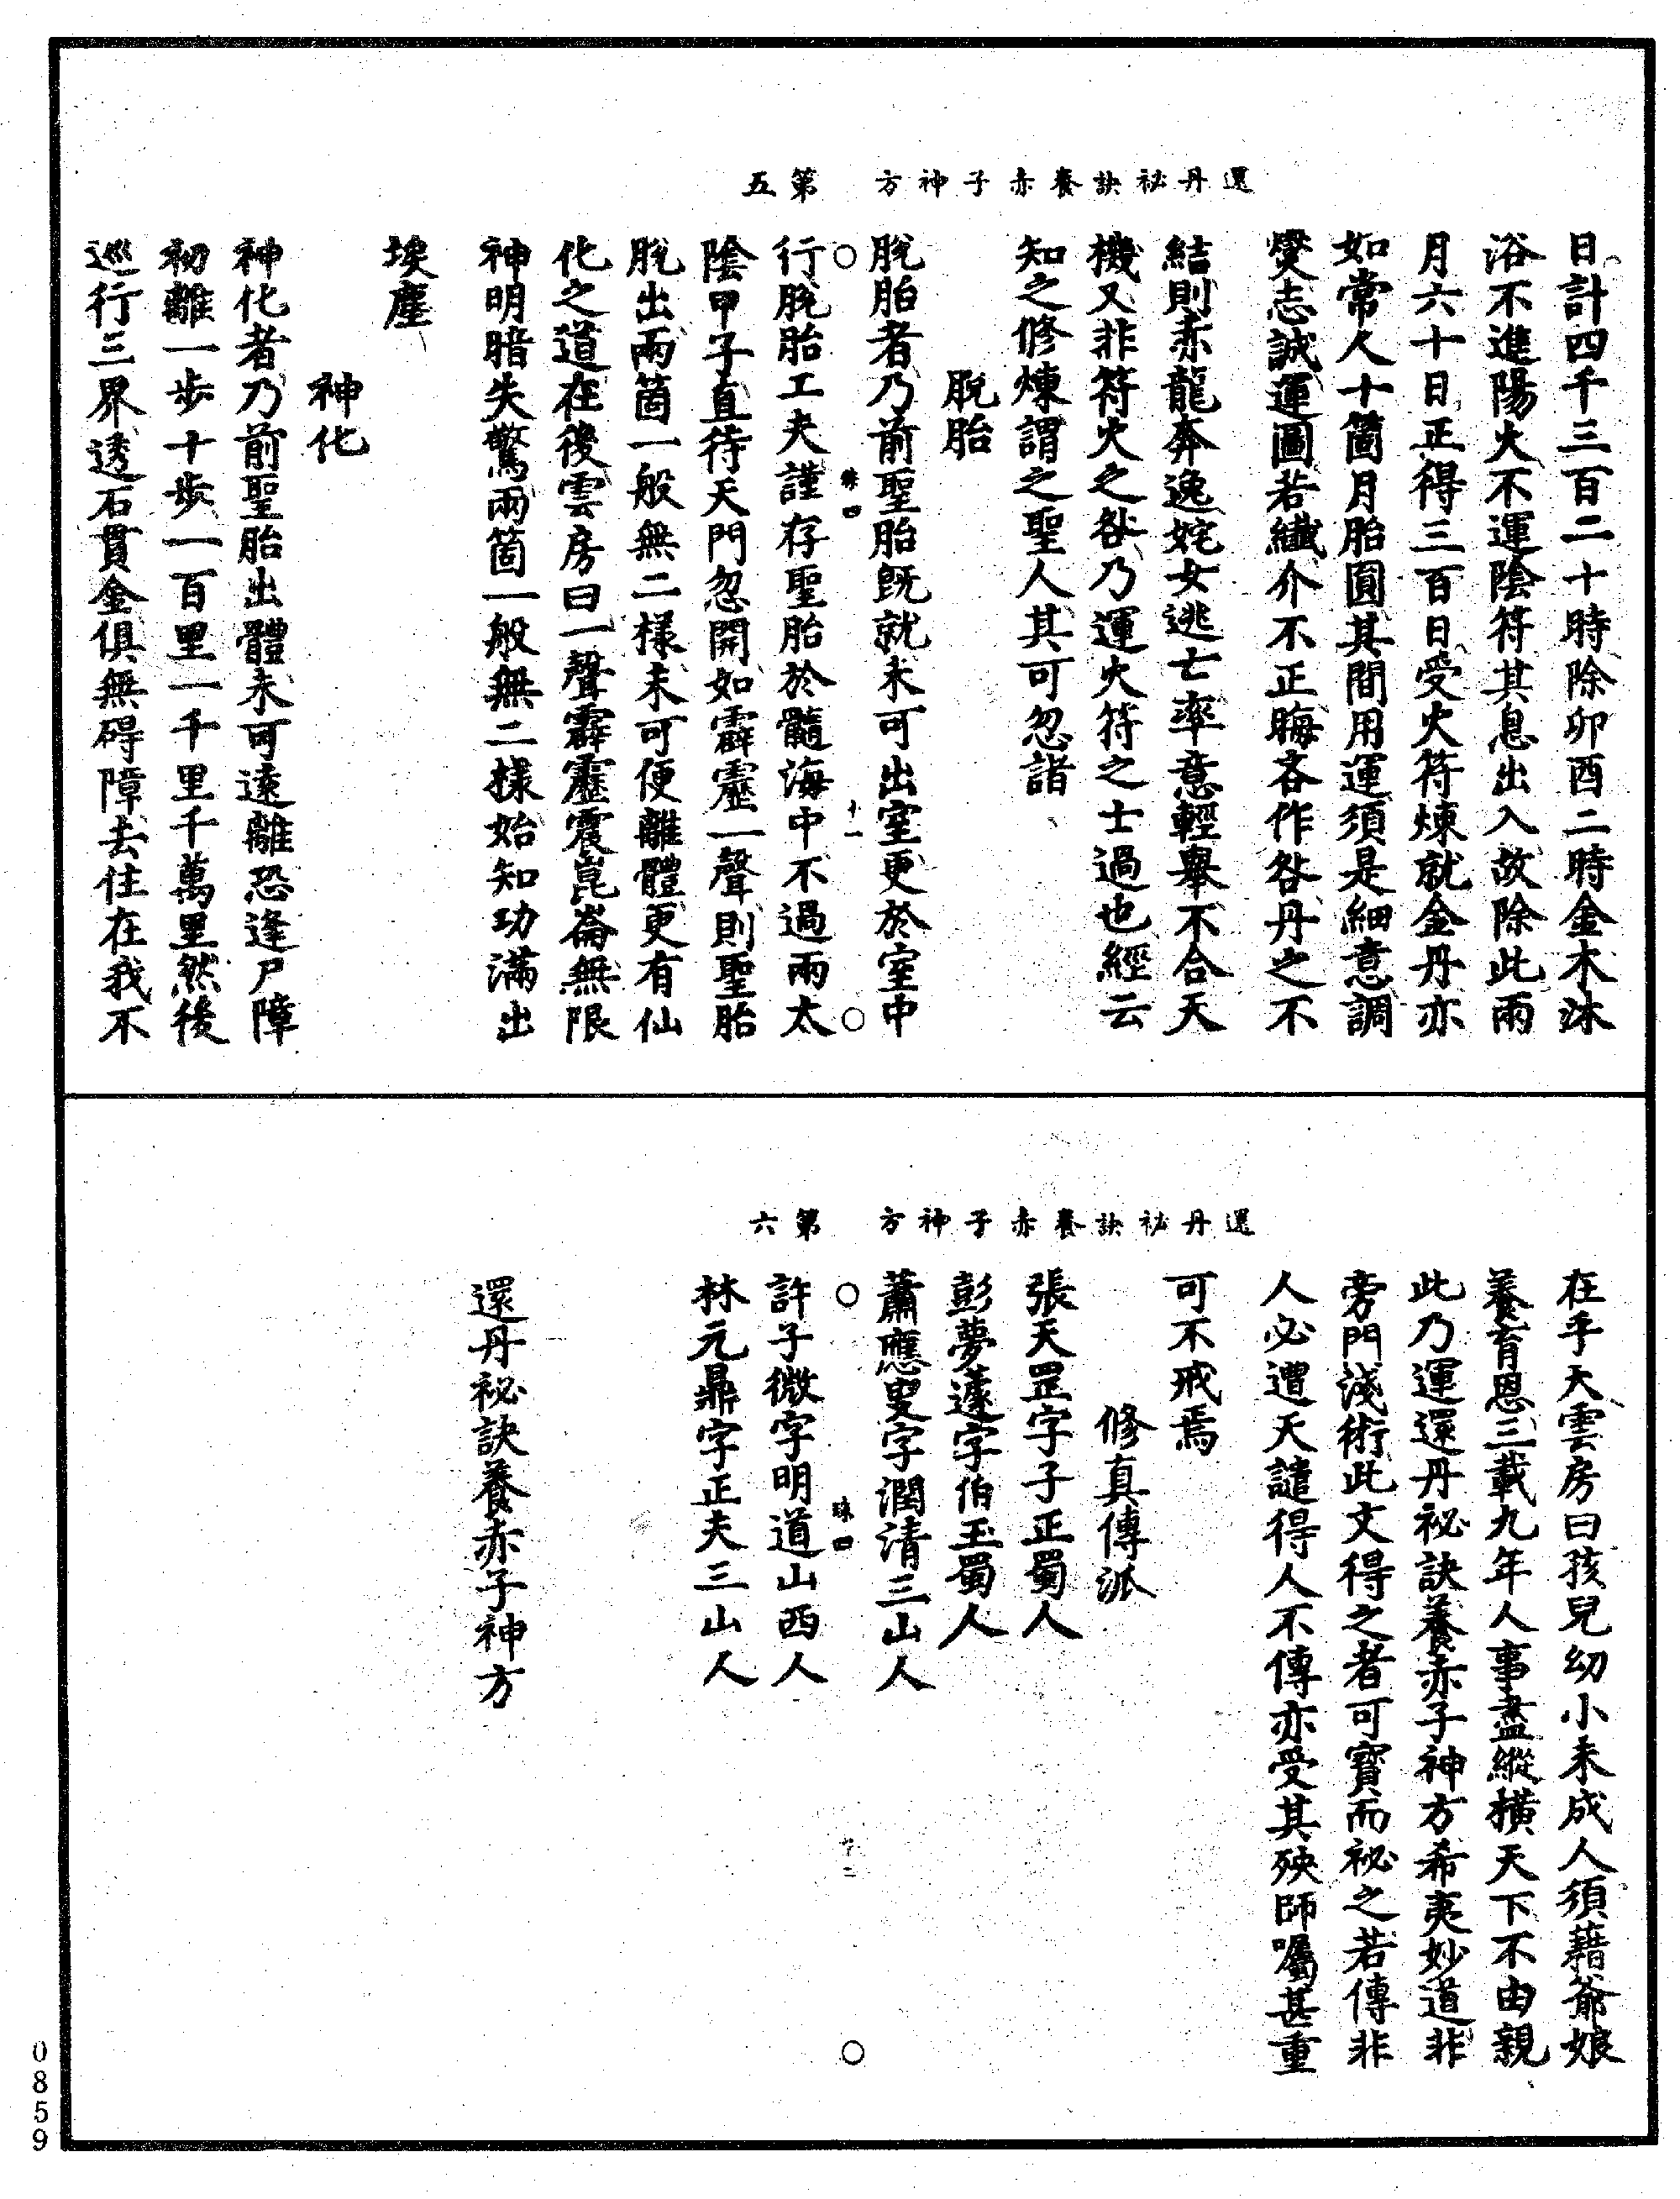 還丹祕訣養赤子神方　第五
日計四千三百二十時除卯酉二時金木沐
浴不進陽火不運陰符其息出入故除此兩
月六十日正得三百日受火符煉就金丹亦
如常人十箇月胎圓其間用運須是細意調
燮志誠運圖若纖介不正晦吝作咎丹之不
結則赤龍奔逸姹女逃亡率意輕舉不合天
機又非符火之咎乃運火符之士過也經云
知之修煉謂之聖人其可忽諧
脫胎
脫胎者乃前聖胎既就未可出室更於室中
行脫胎工夫謹存聖胎於髓海中不過兩太
陰甲子直待天門忽開如霹靂一聲則聖胎
脫出兩箇一般無二樣未可便離體更有仙
化之道在後雲房曰一聲霹靂震崑崙無限
神明暗失驚兩箇一般無二樣始知功滿出
埃塵
神化
神化者乃前聖胎出體未可遠離恐逢尸障
初離一步十步一百里一千里千萬里然後
巡行三界透石貫金俱無碍障去住在我不
還丹祕訣養赤子神方　第六
在乎天雲房曰孩兒幼小未成人須藉爺娘
養育恩三載九年人事盡縱橫天下不由親
此乃運還丹祕訣養赤子神方希夷妙道非
旁門淺術此文得之者可寶而祕之若傳非
人必遭天譴得人不傳亦受其殃師囑甚重
可不戒焉
修真傳派
張天罡字子正蜀人
彭夢蘧字伯玉蜀人
蕭應叟字潤清三山人
許子微字明道山西人
林元鼎字正夫三山人
還丹祕訣養赤子神方
0859